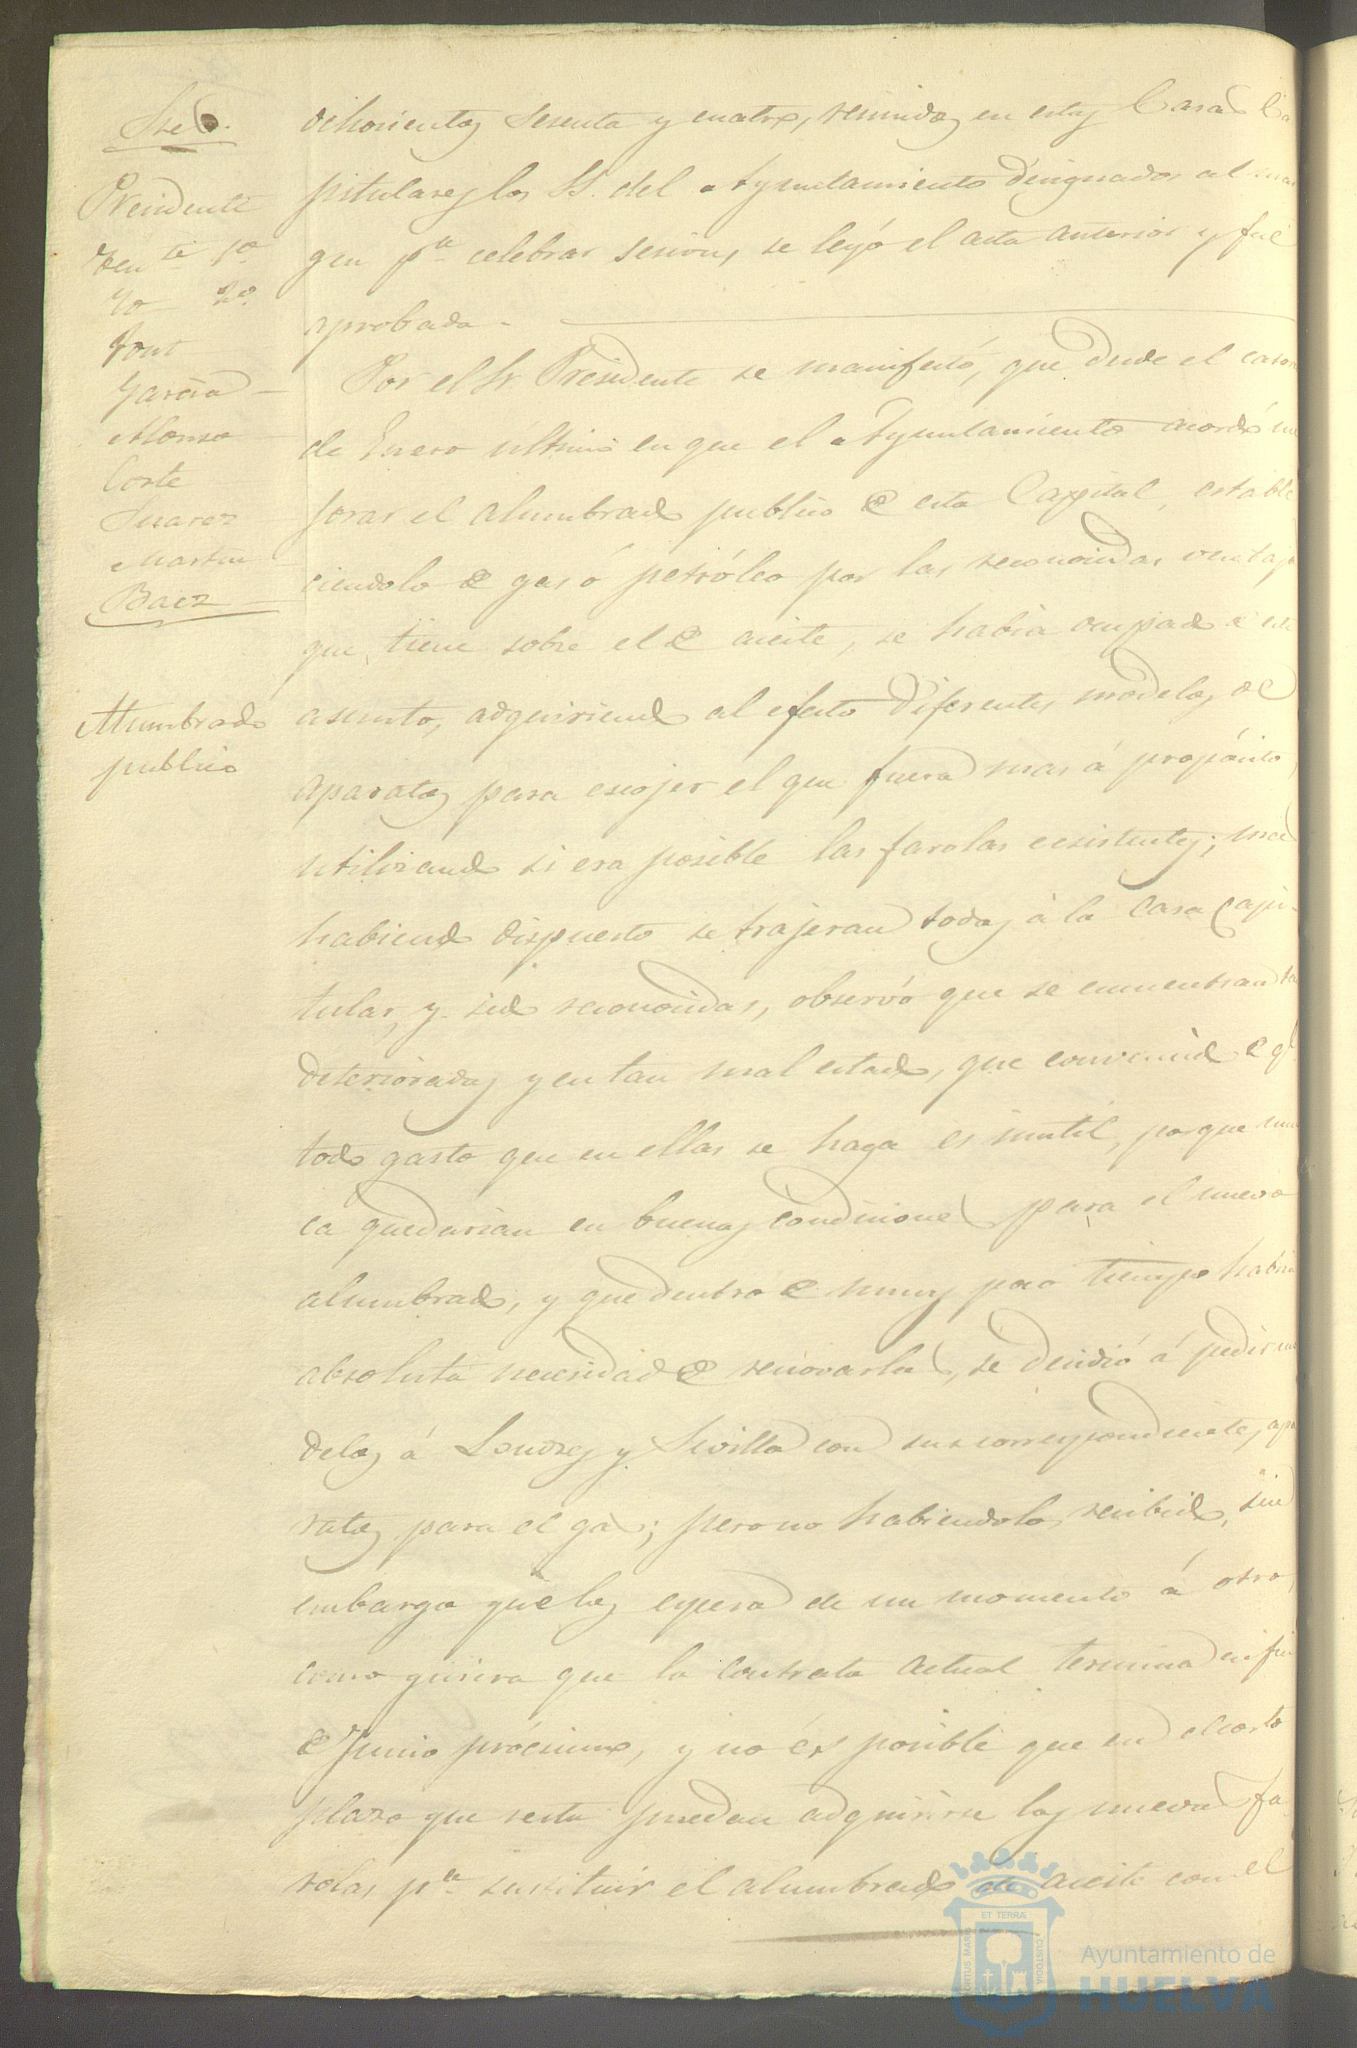 Sres.
Presidente
Ten.te 1.º
Yd 2.º
Font
Garcia
Alonso
Corte
Suarez
Martin
Baez
Alumbrado
publico
ochocientos sesenta y cuatro, reunidos en estas Casas Ca
pitulares los SS. del Ayuntamiento designados al mar
gen p.a celebrar sesion, se leyó el acta anterior y fué
aprobada.
Por el Sr Presidente se manifestó, que desde el catorce
de Enero último en que el Ayuntamiento acordó me
jorar el alumbrado publico de esta Capital, estable
ciendolo de gas ó petróleo por las reconocidas ventajas
que tiene sobre el de aceite, se habia ocupado de este
asunto, adquiriendo al efecto diferentes modelos de
aparatos para escojer el que fuera mas á propósito,
utilizando si era posible las farolas ecsistentes; mas
habiendo dispuesto se trajeran todas á la Casa Capi-
tular, y sido reconocidas, observó que se encuentran tan
deterioradas y en tan mal estado, que convencido de q.e
todo gasto que en ellas se haga es inutil, porque nun
ca quedarian en buenas condiciones para el nuevo
alumbrado, y que dentro de muy poco tiempo habria
absoluta necesidad de renovarlas, se decidió á pedir mo
delos á Londres y Sevilla con sus correspondientes apa
ratos para el gas; pero no habiendolos recibido, sin
embargo que los espera de un momento á otro,
como quiera que la contrata actual termina en fin
de Junio prócsimo, y no és posible que en el corto
plazo que resta puedan adquirirse las nuevas fa
rolas p.a sustituir el alumbrado de aceite con el
ET TERRÆ
CUSTODIA
Ayuntamiento de
HUELVA